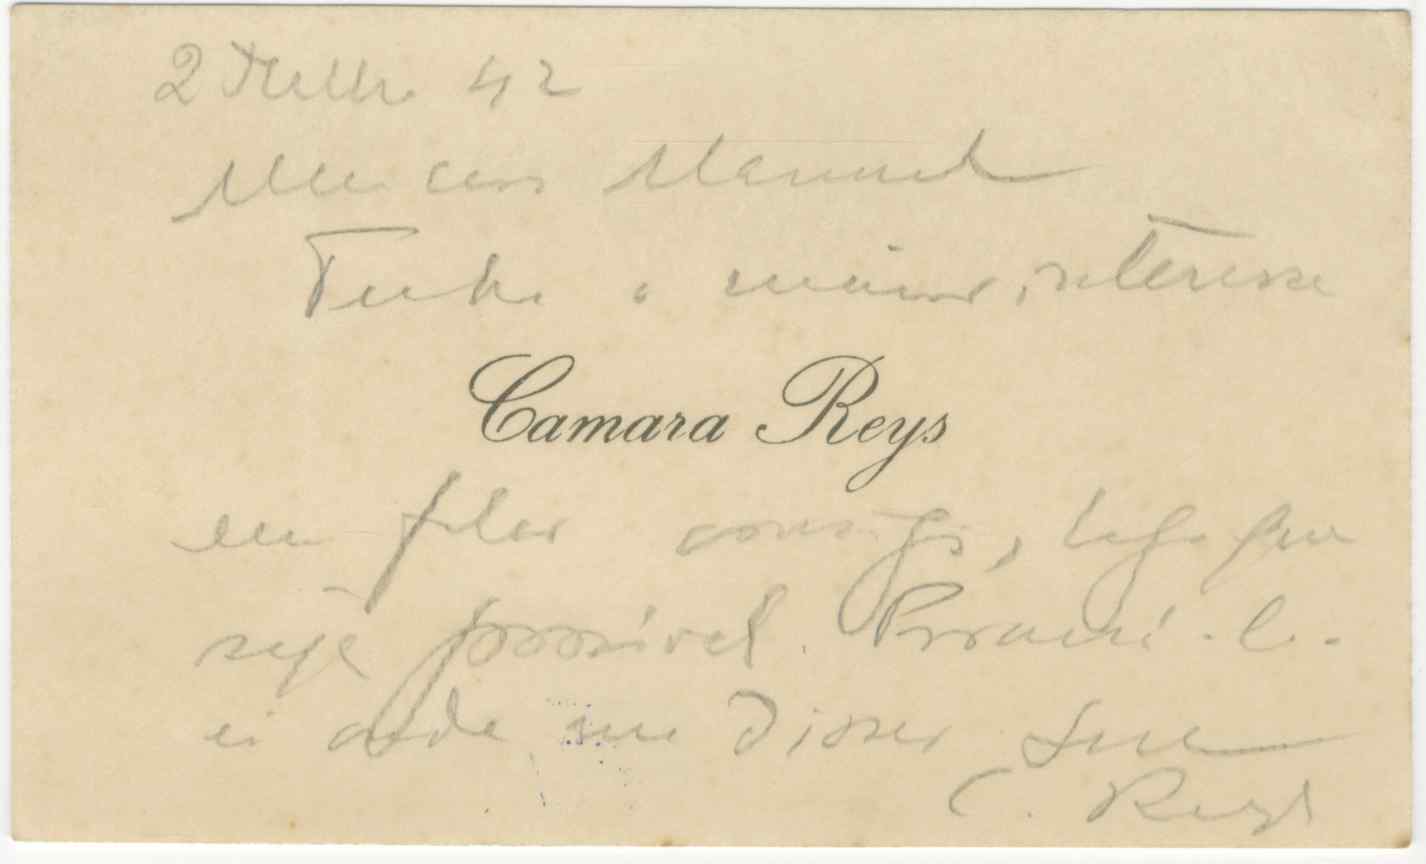 2 Julho 42
Meu caro Manuel
Tenho o maior interesse
Camara Reys
em falar consigo, logo que
seja possivel. Procurá-lo-
ei onde me disser. Seu
C. Reys